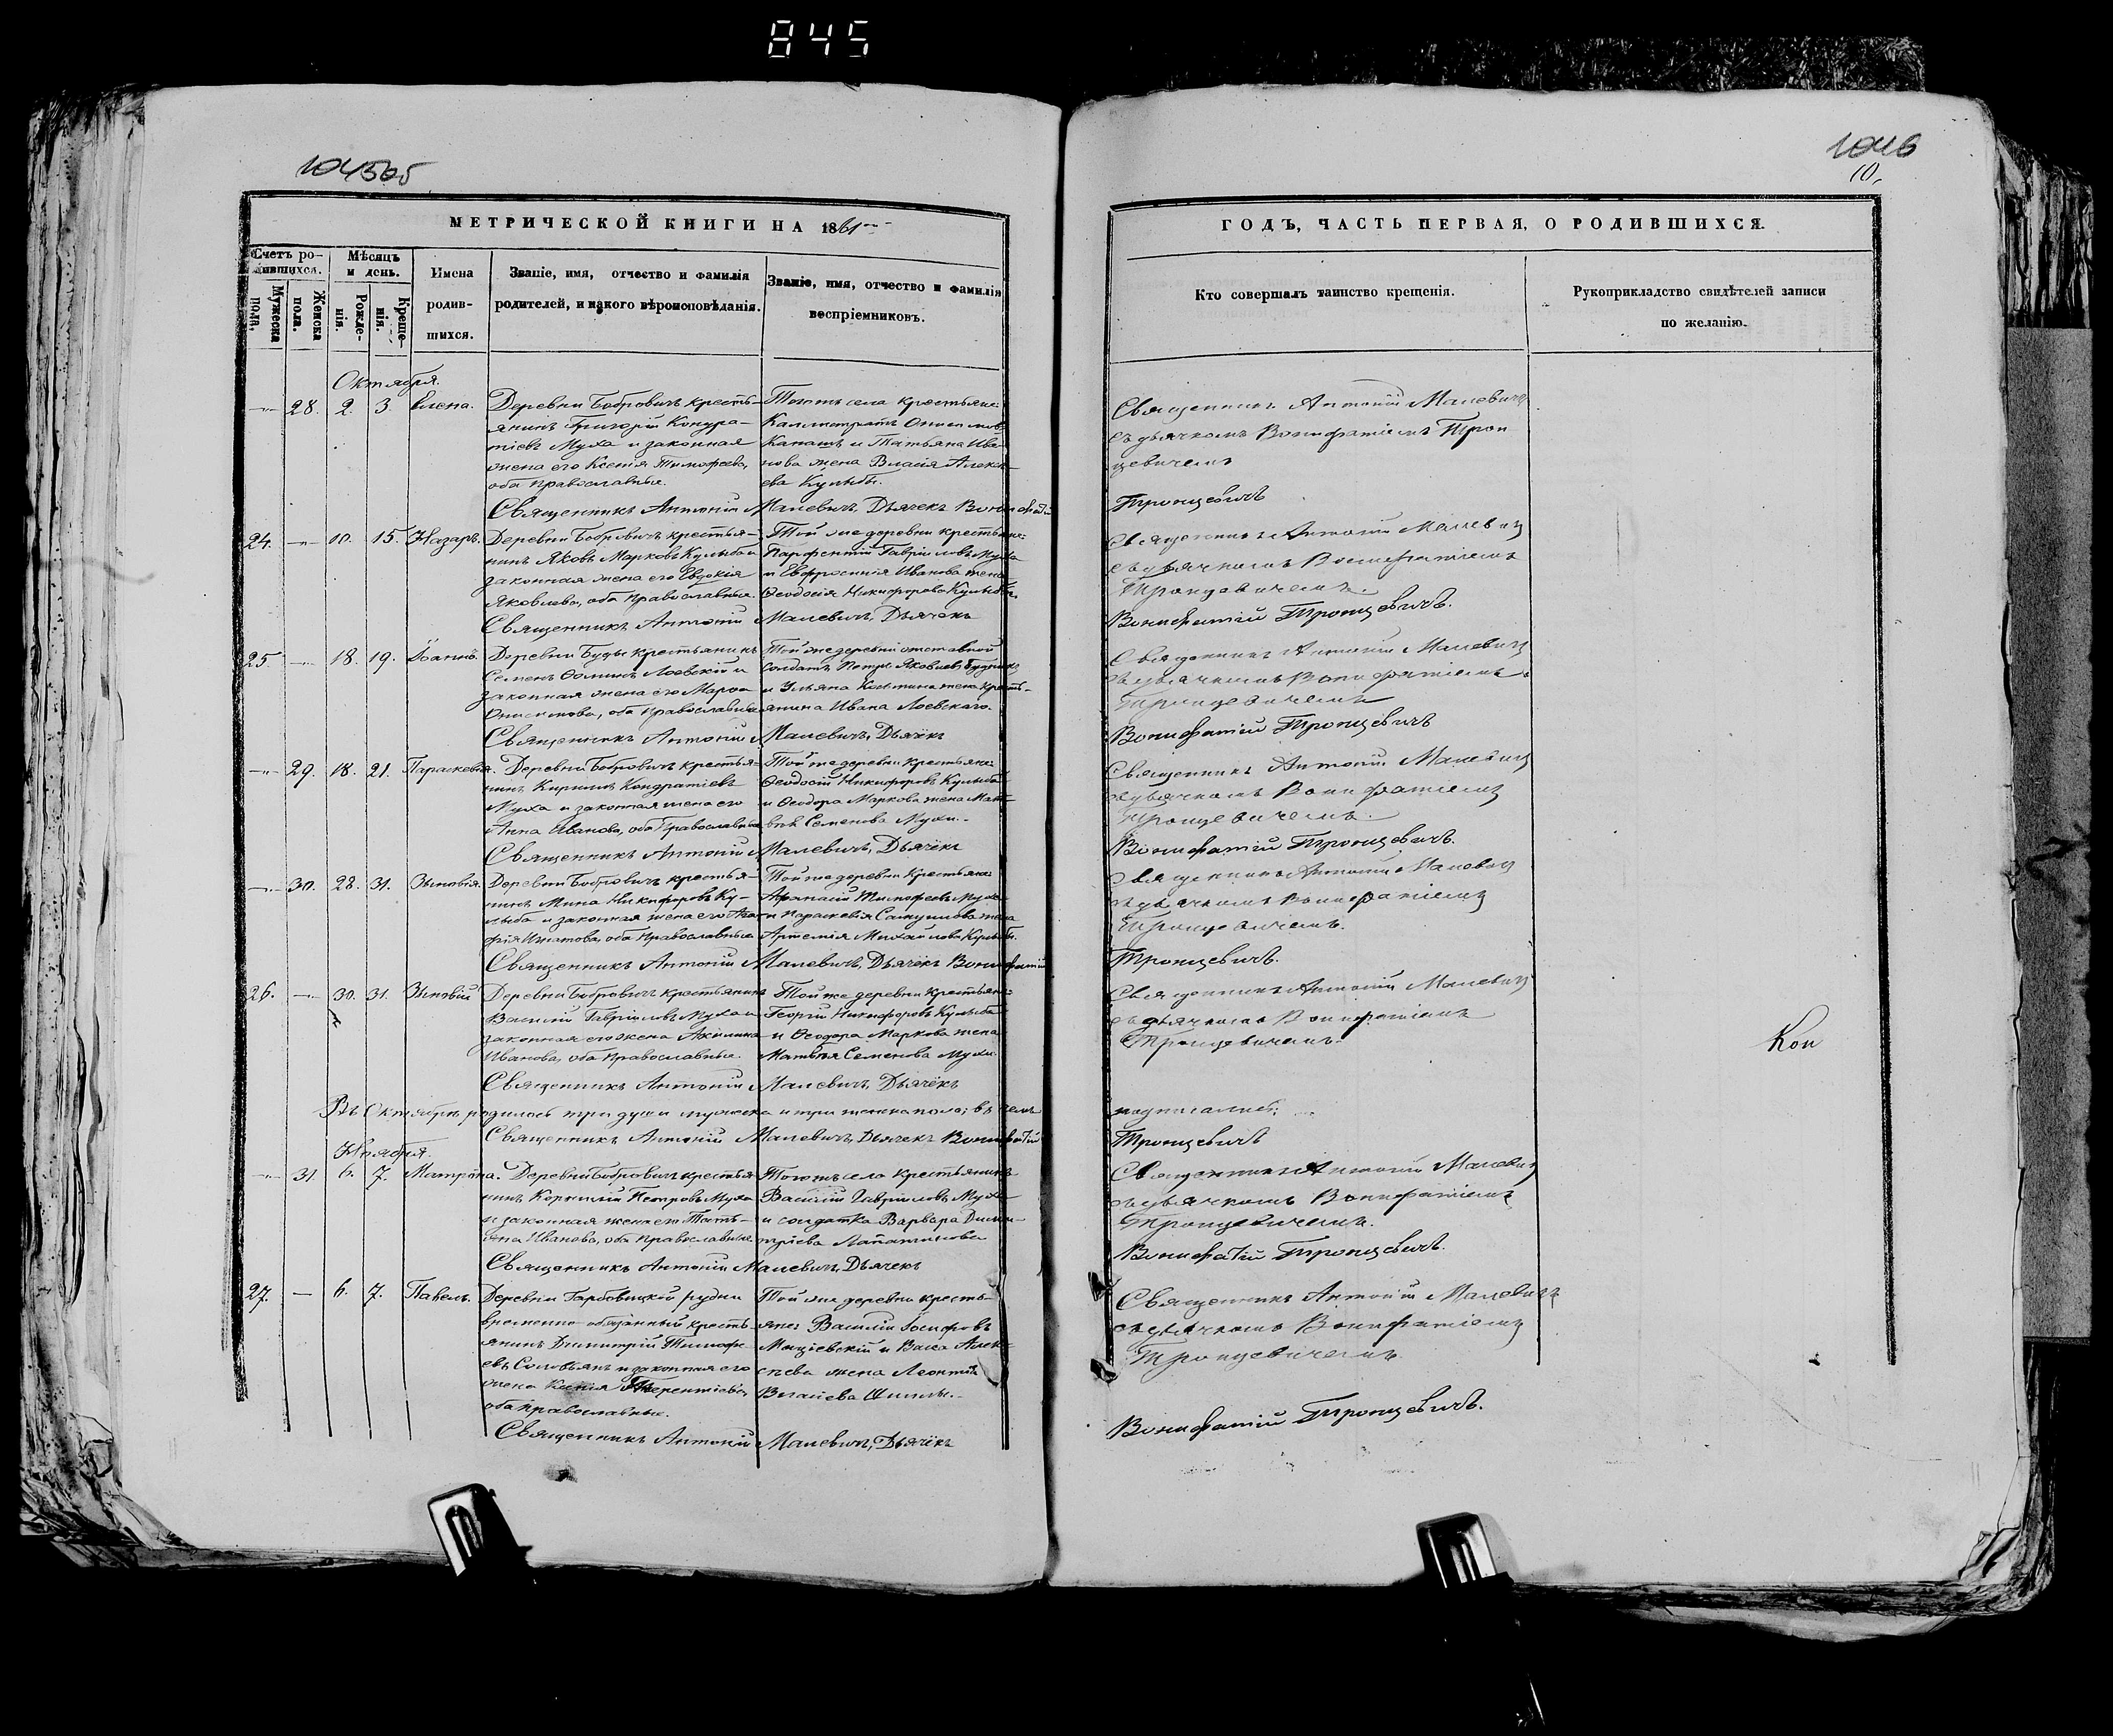 845
1045об
1046
10.
МЕТРИЧЕСКОЙ КНИГИ НА 1861
ГОДЪ, ЧАСТЬ ПЕРВАЯ, О РОДИВШИХСЯ.
Счетъ родившихся.
Мужеска пола.
Женска пола.
Мѣсяцъ и день.
Рожденія.
Крещенія.
Имена родившихся.
Званіе, имя, отчество и фамилія
родителей, и какого вѣроисповѣданія.
Званіе, имя, отчество и фамилія
воспріемниковъ.
Кто совершалъ таинство крещенія.
Рукоприкладство свидѣтелей записи
по желанію.
Октября.
28. 2. 3. Елена.
Деревни Бобровичъ кресть-
янинъ Григорій Кондра-
тіевъ Муха и законная
жена его Ксенія Тимофеева,
оба православные.
Тогожъ села крестьяне:
Каллистратъ
и Татьяна Ива-
нова жена Власія Алексѣ-
ева Кулыбы.
Священникъ Антоній Малевичъ
съ дьячкомъ Вонифатіемъ Трон
цевичемъ
Священникъ Антоній Малевичъ, Дьячекъ Вонифатій
Тронцевичъ
24. 10. 15. Назаръ.
Деревни Бобровичъ крестья-
нинъ Яковъ Марковъ Кулыба и
законная жена его Евдокія
Яковлева, оба православные.
Той же деревни крестьяне:
Парфентій Гавріиловъ Муха
и Евфросинія Иванова жена
Ѳеодосія Никифорова Кулыбы.
Священникъ Антоній Малевичъ
съ дьячкомъ Вонифатіемъ
Тронцевичемъ.
Священникъ Антоній Малевичъ, Дьячекъ
Вонифатій Тронцевичъ.
25. 18. 19. Іоаннъ.
Деревни Буды крестьянинъ
Семенъ Ѳоминъ Лоевскій и
законная жена его Марѳа
Онисимова, оба православные
Той же деревни отставной
солдатъ Петръ Яковлевъ
и Ульяна жена кресть-
янина Ивана Лоевскаго.
Священникъ Антоній Малевичъ
съ дьячкомъ Вонифатіемъ
Тронцевичемъ
Священникъ Антоній Малевичъ, Дьячекъ
Вонифатій Тронцевичъ
29. 18. 21. Параскевія.
Деревни Бобровичъ крестья-
нинъ Кириллъ Кондратіевъ
Муха и законная жена его
Анна Иванова, оба Православные
Той же деревни крестьяне:
Ѳеодосій Никифоровъ Кулыба
и Ѳеодора Маркова жена Мат-
вѣя Семенова Мухи.
Священникъ Антоній Малевичъ
съ дьячкомъ Вонифатіемъ
Тронцевичемъ.
Священникъ Антоній Малевичъ, Дьячекъ
Вонифатій Тронцевичъ.
30. 28. 31. Зиновія.
Деревни Бобровичъ крестья-
нинъ Мина Никифоровъ Ку-
лыба и законная жена его Ага-
фія Игнатова, оба православные
Той же деревни крестьяне:
Афанасій Тимофеевъ Муха
и Параскевія Самуилова жена
Артемія Михайлова Кулыбы.
Священникъ Антоній Малевичъ
съ дьячкомъ Вонифатіемъ
Тронцевичемъ.
Священникъ Антоній Малевичъ, Дьячекъ Вонифатій
Тронцевичъ.
26. 30. 31. Зиновій
Деревни Бобровичъ крестьянинъ
Василій Гавріиловъ Муха и
законная его жена Акилина
Иванова, оба православные.
Той же деревни крестьяне:
Георгій Никифоровъ Кулыба
и Ѳеодора Маркова жена
Матвѣя Семенова Мухи.
Священникъ Антоній Малевичъ
съ дьячкомъ Вонифатіемъ
Тронцевичемъ.
Кои
Священникъ Антоній Малевичъ, Дьячекъ
Въ Октябрѣ родилось три души мужеска и три женска пола; въ чемъ
подписались:
Священникъ Антоній Малевичъ, Дьячекъ Вонифатій
Тронцевичъ
Ноября.
31. 6. 7. Матрона.
Деревни Бобровичъ крестья-
нинъ Корнилій Петровъ Муха
и законная жена его Тать-
яна Иванова, оба православные
Тогожъ села крестьянинъ
Василій Гавріиловъ Муха
и солдатка Варвара Дими-
тріева Лапатинова
Священникъ Антоній Малевичъ
съ дьячкомъ Вонифатіемъ
Тронцевичемъ.
Священникъ Антоній Малевичъ, Дьячекъ
Вонифатій Тронцевичъ.
27. 6. 7. Павелъ.
Деревни Гарбовицкой рудни
временно-обязанный кресть-
янинъ Димитрій Тимофе-
евъ и законная его
жена Ксенія Терентіева,
оба православные.
Той же деревни кресть-
яне: Василій Іосифовъ
и Васса Алек-
сѣева жена Леонтія
Власіева
Священникъ Антоній Малевичъ
съ дьячкомъ Вонифатіемъ
Тронцевичемъ.
Священникъ Антоній Малевичъ, Дьячекъ
Вонифатій Тронцевичъ.